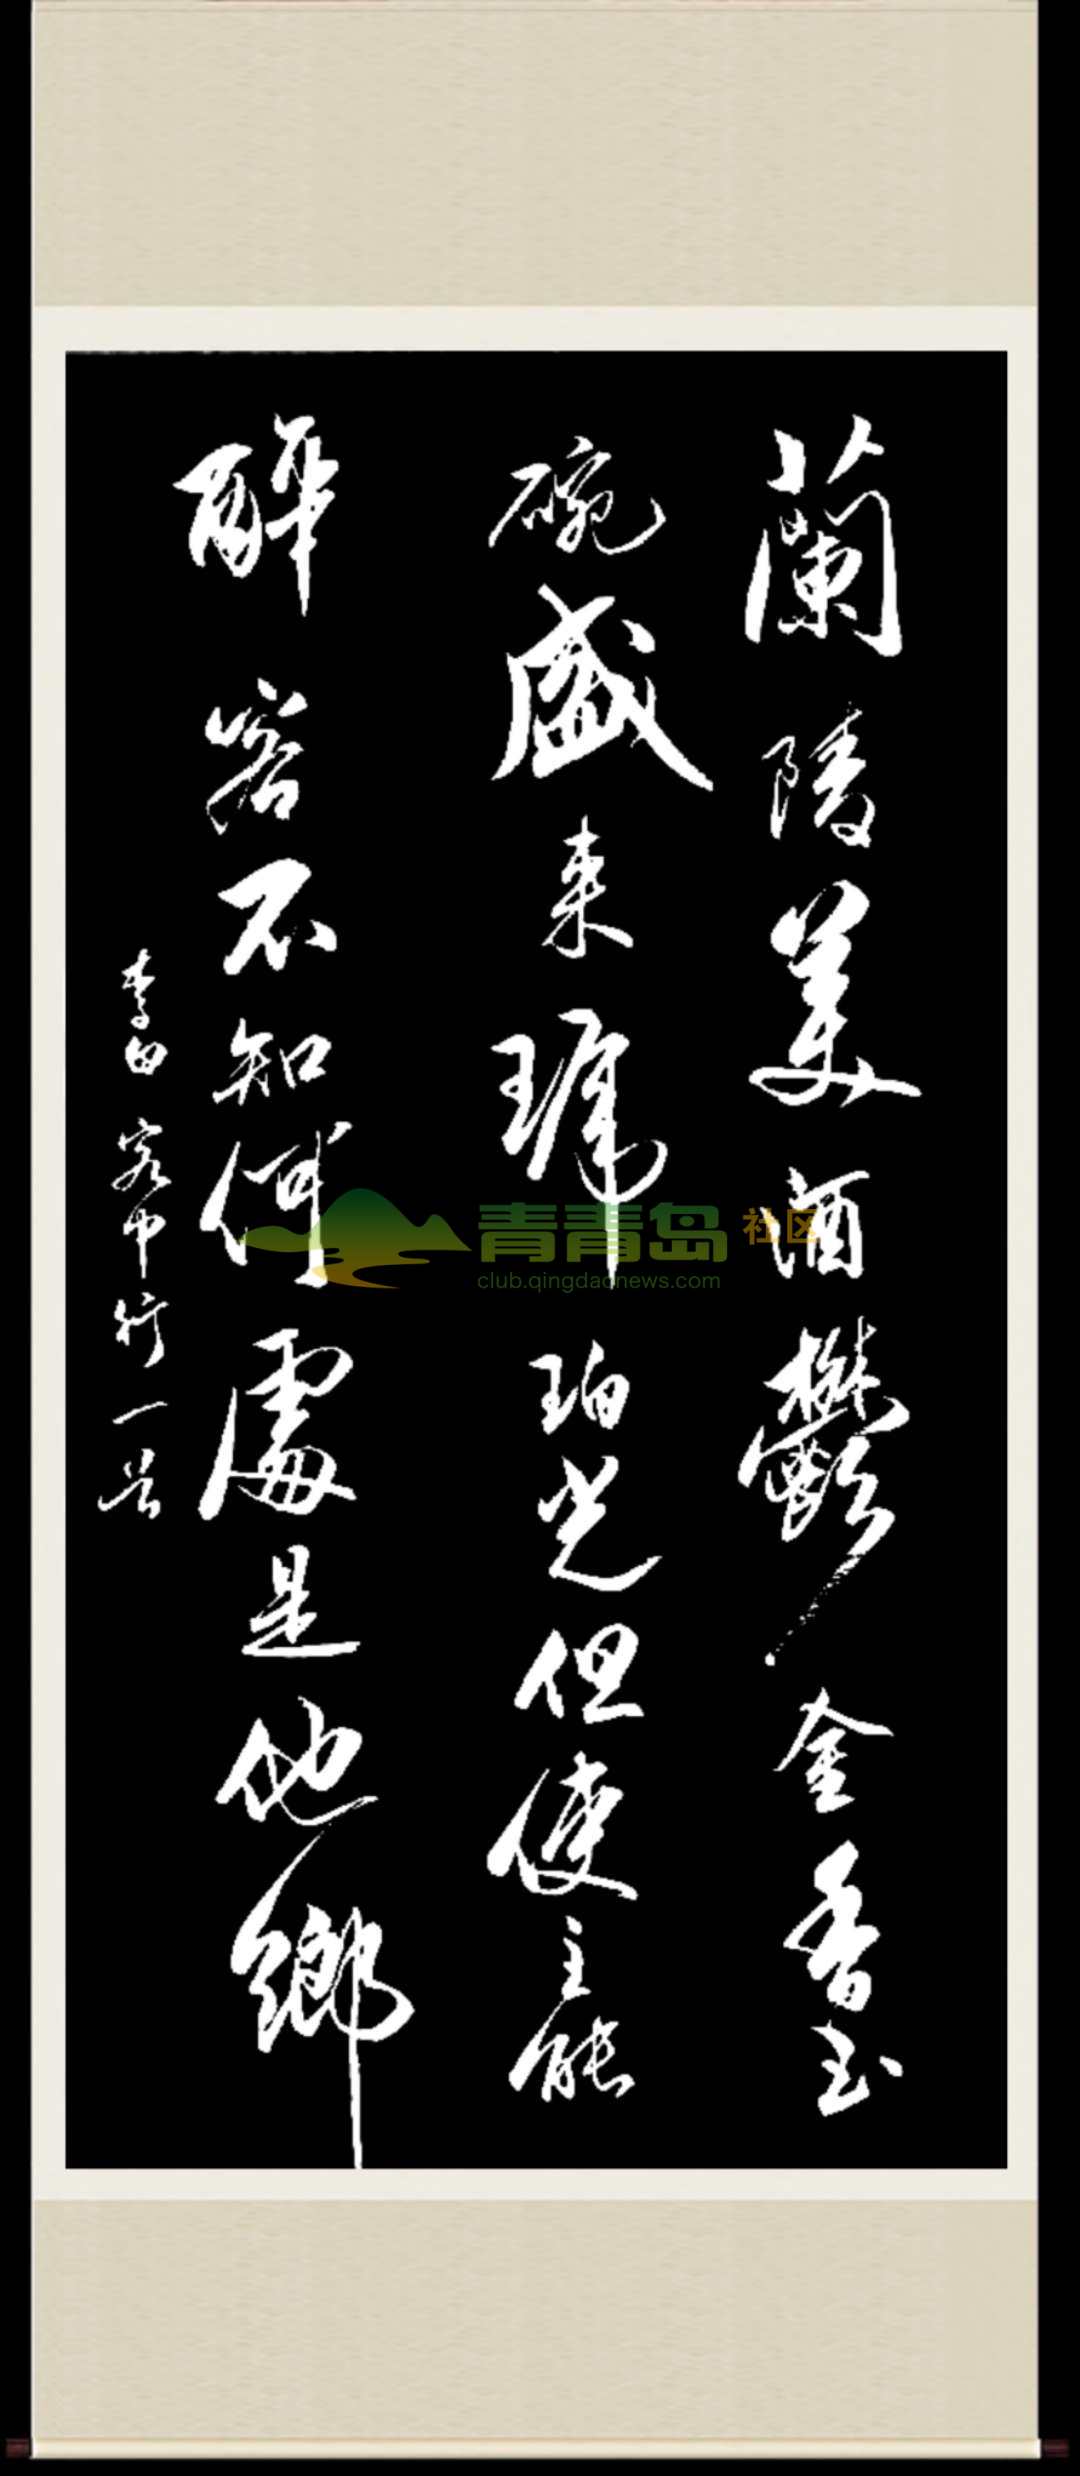 蘭陵美酒鬱金香玉
碗盛来琥珀光但使主能
醉客不知何處是他鄉
李白客中行一首
青青岛社区
club.qingdaonews.com